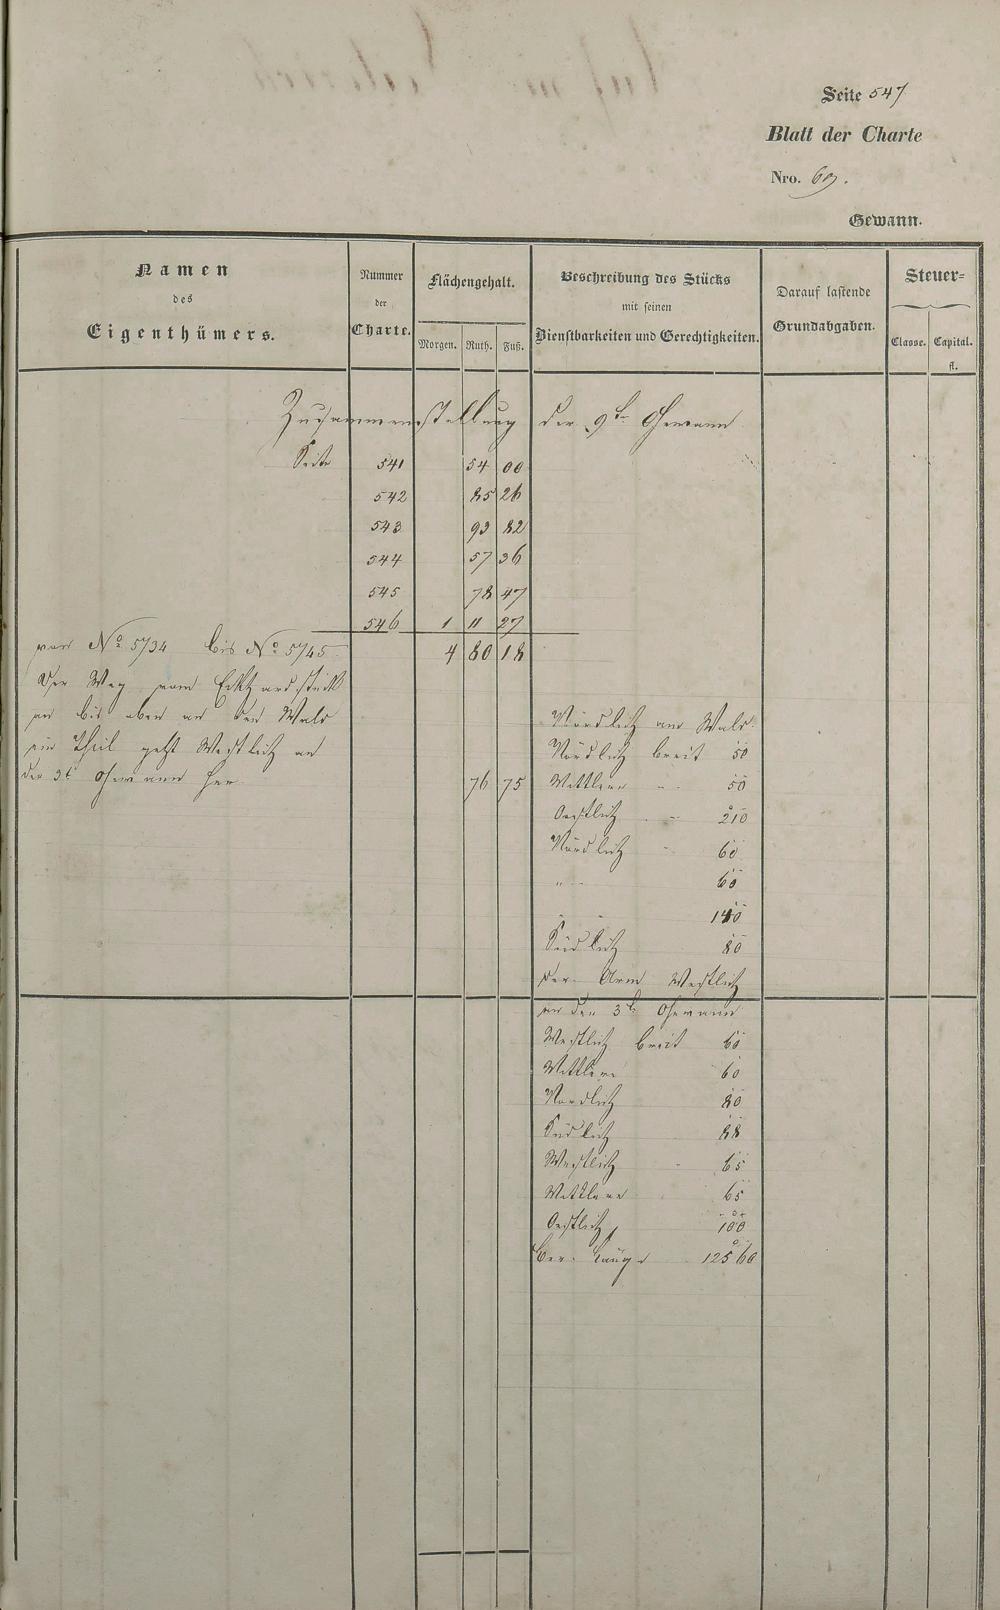 Seite 547
Blatt der Charte
Nro. 69.
Gewann.
Namen
des
Eigenthümers.
Nummer
der
Charte.
Flächengehalt.
Morgen. Ruth. Fuß.
Beschreibung des Stücks
mit seinen
Dienstbarkeiten und Gerechtigkeiten.
Darauf lastende
Grundabgaben.
Steuer-
Classe. Capital.
fl.
Zusammenstellung der 9t Gewann
Seite 541 54 00
542 85 26
543 93 82
544 57 36
545 78 47
546 1 11 27
4 80 18
von No 5734 bis No 5745
Der Weg vom Eckhardstück
an bis oben an den Wald
ein Theil geht Westlich an
der 3t Gewann her 76 75
Nördlich am Wald
Nördlich breit 50
Mittlere " 50
Oestlich " 210
Nördlich " 60
" 60
" 140
Südlich 80
der Arm Westlich
an der 3t Gewann
Westlich breit 60
Mittlere 60
Nördlich 80
Südlich 88
Westlich " 65
Mittlere 65
Oestlich 100
der Länge 125 60